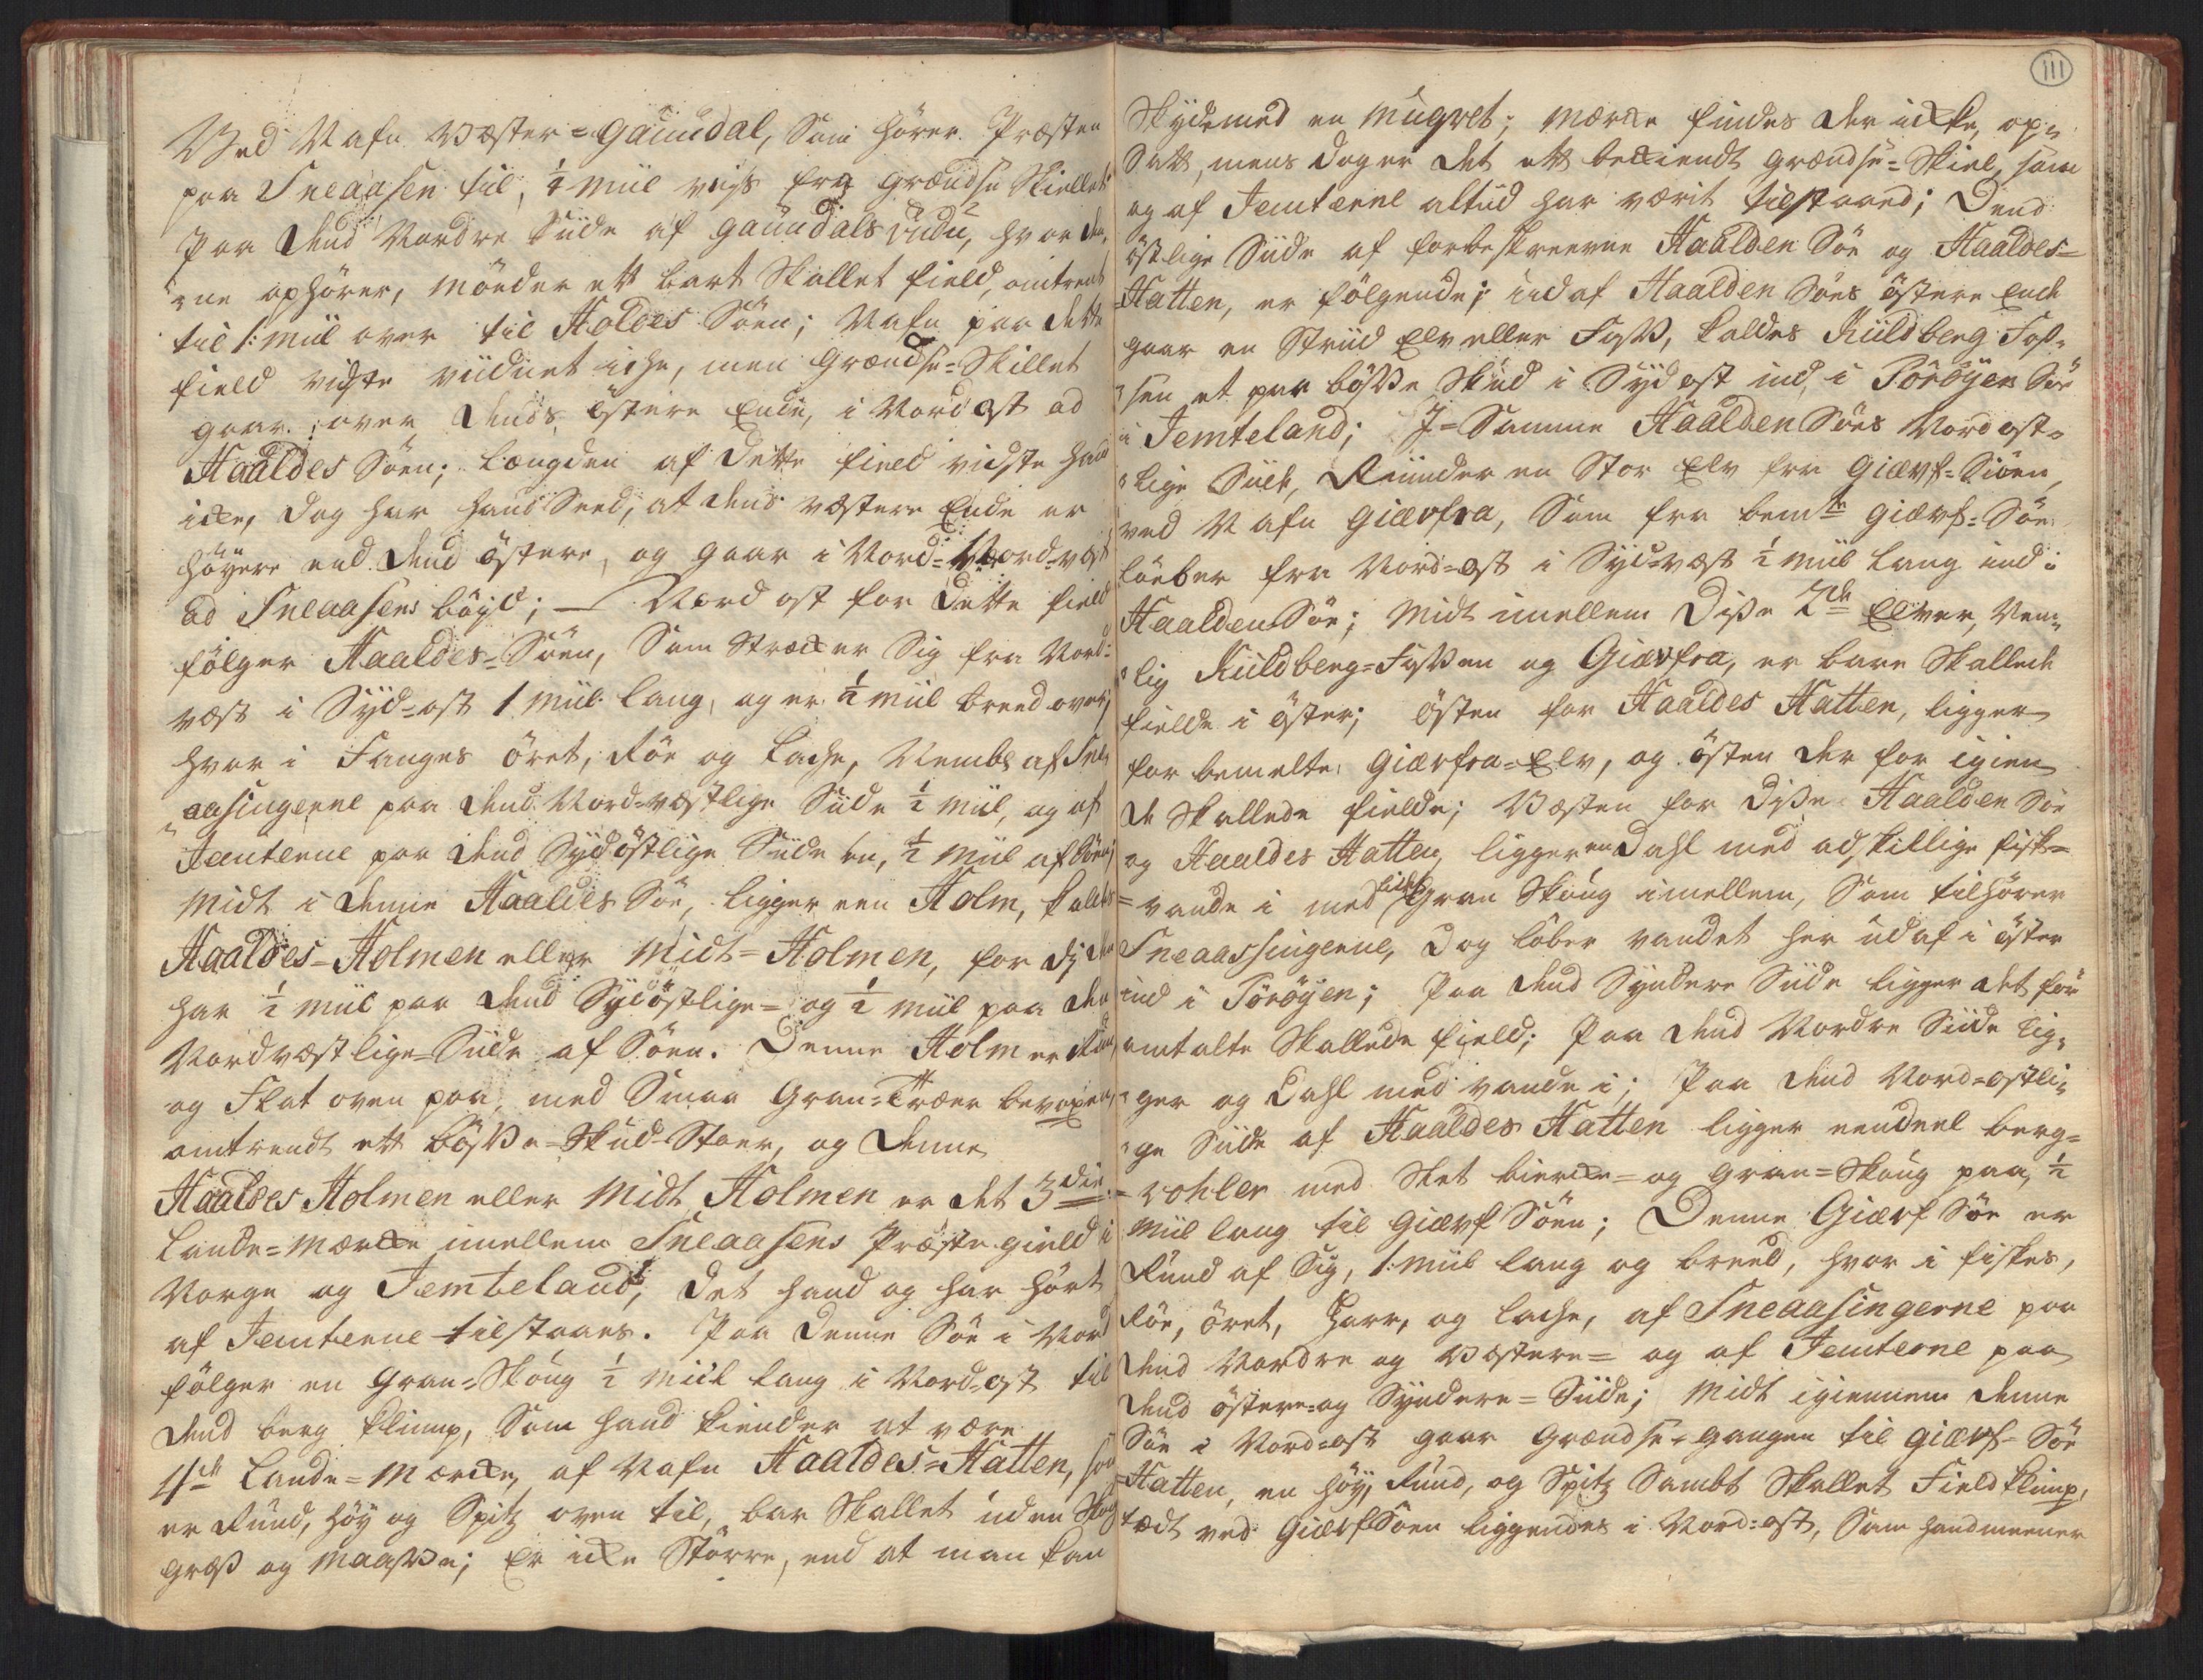 Ved Nafn Wæster-Gauundal, som hører Præsten
paa Sneaasen til, ¼ Miil viiss fra Grændse Skiellet
Paa dend Nordre Siide af Gauundals Vidu, hvor
ophører, möeder ett bart Skallet field, omtrent
til 1: Miil over til Holdes Söen; Nafn paa dette
field vidste viidnet iche, men Grændse-Skillet
gaar over dends östere Ende, i Nordost ad
Haaldes Söen; Længden af dette field vidste hand
icke, dog har hand Seed, at dends væstere Ende er
höyere end dend östere, og gaar i Nord-Nord-væst
ad Sneaasens böyd; — Nord ost for dette field
fölger Haaldes-Söen, Som Strecker Sig fra Nord-
væst i Syd-ost 1 Miil lang, og er ½ Miil breed over,
hvor i Fanges öret, Röe og Lache, Nembl af Sne-
aasingerne paa dend Nord-væstlige Siide ½ Miil, og af
Jemterne paa dend Sydöstlige Siide en, ½ Miil af Söen;
Midt i denne Haaldes Söe, ligger een Holm, kaldes
Haaldes-Holmen eller Midt-Holmen, for di den
har ½ Miil paa dend Sydöstlige- og ½ Miil paa den
Nordvæstlige-Siide af Söen. Denne Holm er Rund
og Flat oven paa, med Smaa Gran-Træer bevoxen,
omtrendt ett bösse-Skud-Stoer, og denne
Haaldes Holmen eller Midt Holmen er det 3die
Lande-Mærcke imellem Sneaasens Præstegield i
Norge og Jemteland; det hand og har hört
af Jemterne tilstaaes. Paa denne Söe i Nord
fölger en Gran-Skoug ½ Miil lang i Nord-ost til
dend berg klimp, Som hand kiender at være
4de Lande-Mærcke, af Nafn Haaldes-Hatten, som
er Rund, höy og Spitz oven til, bar Skallet uden Skoug
græs og Maasse; Er icke Större, end at man kan
111
Skyde med en Mugvet; Mærcke findes der icke, op-
Satt, mens dog er det ett bekiendt Grændse-Skiel, som
og af Jemterne altiid har værit tilstaaed; Dend
östlige Siide af forbeskreevne Haalden Söe og Haaldes-
Hatten, er fölgende; ud af Haalden Söes östere Ende
gaar en Striid Elv eller Foss, kaldes Kuldberg Foss-
sen et par bösse Skud i Sydost ind, i Töröyen Söe
i Jemteland; J-Samme Haalden Söes Nordost-
lige Siide, Ründer en Stor Elv fra Giævf-Siöen,
ved Nafn Giævfraa, Som fra bemte Giævf-Söe
löeber fra Nord-ost i Syd-væst ½ Miil lang ind i
Haalden Söe; Midt imellem disse 2de Elver, Nem-
lig Kuldberg-Fossen og Giævfra, er bare Skallede
fielde i öster; östen for Haaldes Hatten, ligger
for bemelte Giævfra-Elv, og östen der for igien
de Skallede fielde; Væsten for disse Haalden Söe
og Haaldes Hatten, ligger en Dahl med adskillige fisk-
vande i med lidet Gran Skoug imellem, Som tilhörer
Sneaassingerne, dog löber vandet her ud af i öster
ind i Töröyen; Paa dend Syndere Siide ligger det för
omtalte Skallede field; Paa dend Nordre Siide lig-
ger og Dahl med vande i; Paa dend Nord-ostli-
ge Siide af Haaldes Hatten ligger eendeel berg-
rohler med Slet bircke- og Gran-Skoug paa, ½
Miil lang til Giævf Söen; Denne Giævf Söe er
Rund af Sig, 1: Miil lang og breed, hvor i fiskes,
Röe, öret, Harr, og Lache, af Sneaasingerne paa
dend Nordre og Væstere- og af Jemterne paa
dend östere- og Syndere-Siide; Midt igiennem denne
Söe i Nord-ost gaar Grændse-gangen til Giævf-Söe
Hatten, en höy, Rund, og Spitz Sambt Skallet Field klimp,
tædt ved Giævf Söen liggendes i Nord-ost, Som hand meener